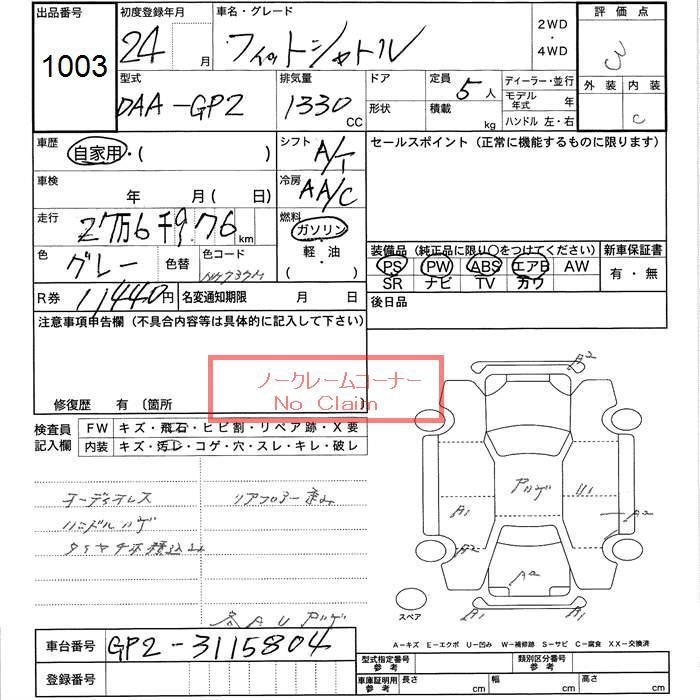 出品番号
1003
初度登録年月
24 月
車名・グレード
フィットシャトル
2WD
・
4WD
評価点
外装 内装
C
型式
DAA-GP2
排気量
1330 CC
ドア
形状
定員 5人
積載 kg
ディーラー・並行
モデル年式 年
ハンドル 左・右
車歴
自家用・( )
シフト
A/T
セールスポイント(正常に機能するものに限ります)
車検
年 月( 日)
冷房
AA/C
走行
2万6千9.76 km
燃料
ガソリン
軽・油
( )
色
グレー
色替
色コード
R券
11440円
名変通知期限 月 日
装備品(純正品に限り○をつけてください)
新車保証書
PS PW ABS エアB AW
有・無
SR ナビ TV カワ
後日品
注意事項申告欄(不具合内容等は具体的に記入して下さい)
ノークレームコーナー
No Claim
修復歴 有 〔箇所
検査員
記入欄
FW キズ・飛石・ヒビ割・リペア跡・X要
内装 キズ・汚レ・コゲ・穴・スレ・キレ・破レ
オーディオレス
リアフロアー歪み
ハンドルハゲ
A2
アハゲ
U1
A1
A2
A2
B1
スペア
A U アハゲ
A-キズ E-エクボ U-凹み W-補修跡 S-サビ C-腐食 XX-交換済
車台番号
GP2-3115804
登録番号
型式指定番号
参考
類別区分番号
参考
車庫証明用
参考
長さ cm
幅 cm
高さ cm